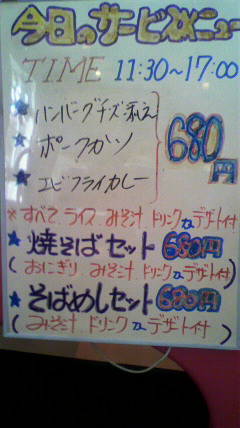 今日のサービスメニュー
TIME 11:30~17:00
★ハンバーグチーズ添え
★ポークカツ
★エビフライカレー
680円
※すべてライス みそ汁 ドリンク デザート付
★焼そばセット 680円
(おにぎり みそ汁 ドリンク デザート付)
★そばめしセット 680円
(みそ汁 ドリンク デザート付)